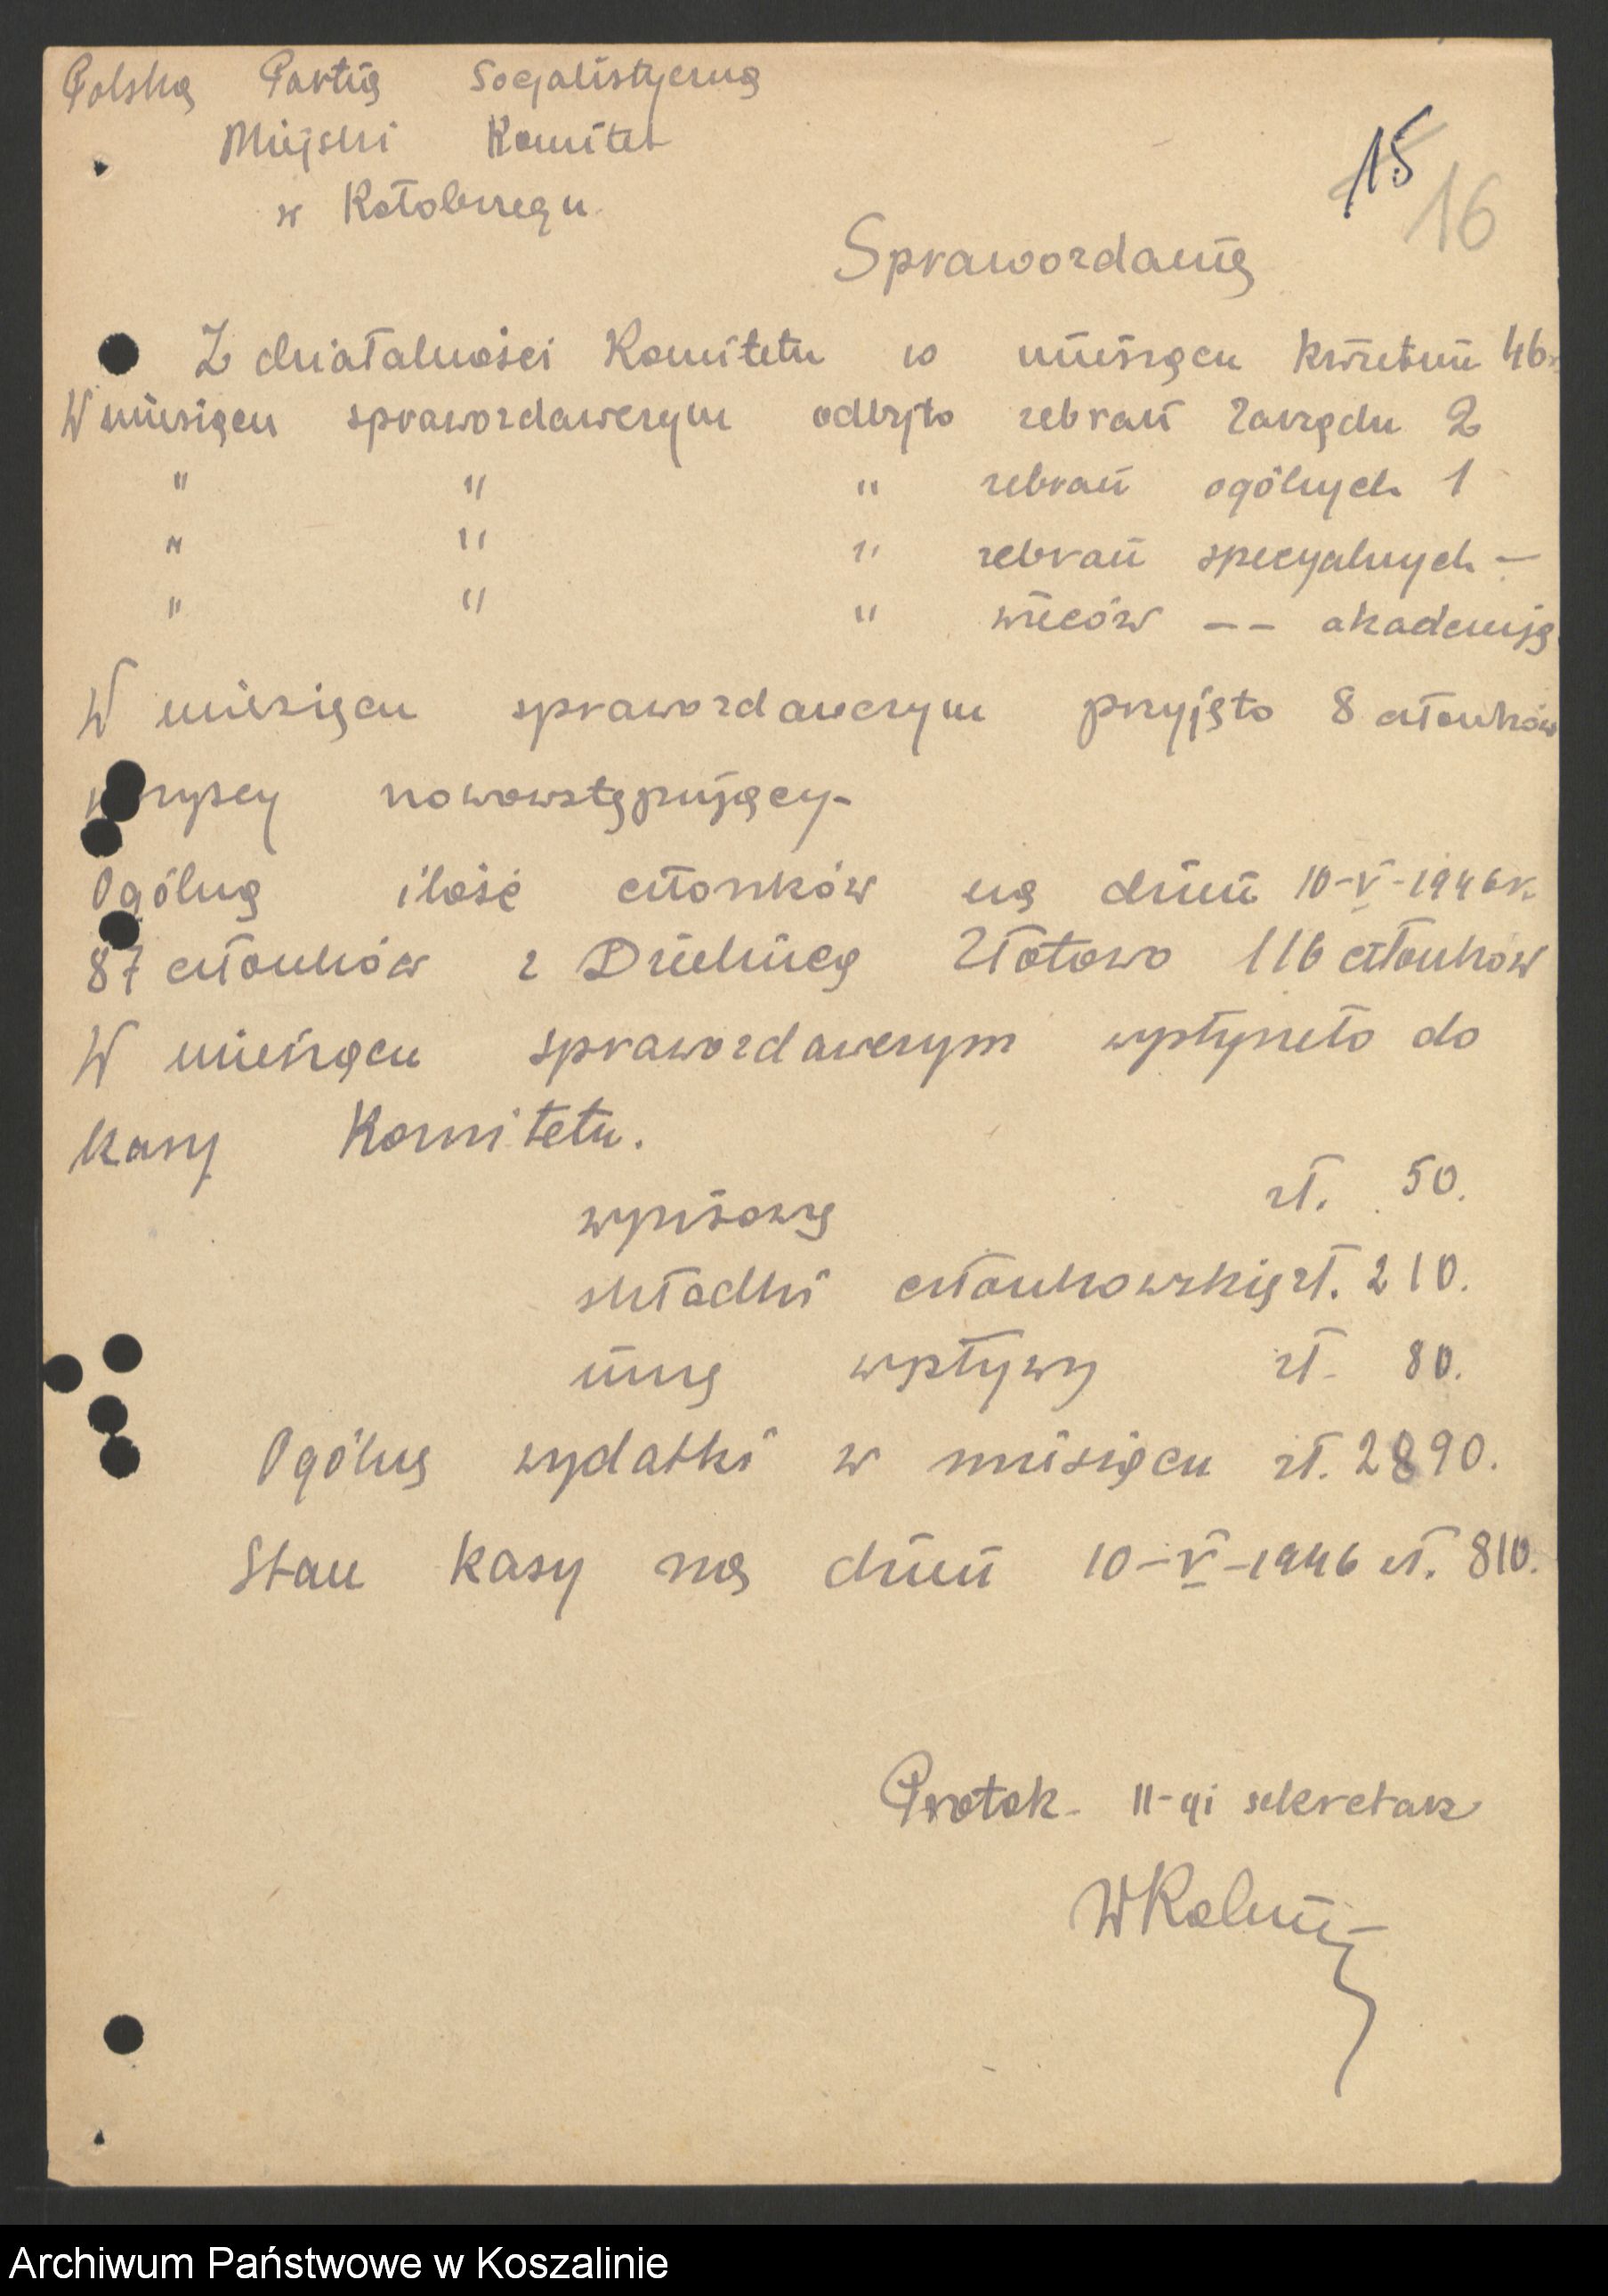 Polska Partia Socjalistyczna
Miejski Komitet
w Kołobrzegu
15
16
Sprawozdanie
Z działalności Komitetu w miesiącu kwietniu 46r
W miesiącu sprawozdawczym odbyto zebrań Zarządu 2
" " " zebrań ogólnych 1
" " " zebrań specyalnych -
" " " wieców -- akademja
W miesiącu sprawozdawczym przyjęto 8 członków
wszyscy nowowstępujący-
Ogólna ilość członków na dzień 10-V-1946r.
87 członków z Dzielnicą Złotowo 116 członków
W miesiącu sprawozdawczym wpłyneło do
kasy Komitetu.
wpisowe zł. 50.
składki członkowskie zł. 210.
inne wpływy zł. 80.
Ogólne wydatki w miesiącu zł. 2890.
Stan kasy na dzień 10-V-1946 zł. 810.
Protok- II-gi sekretarz
Archiwum Państwowe w Koszalinie